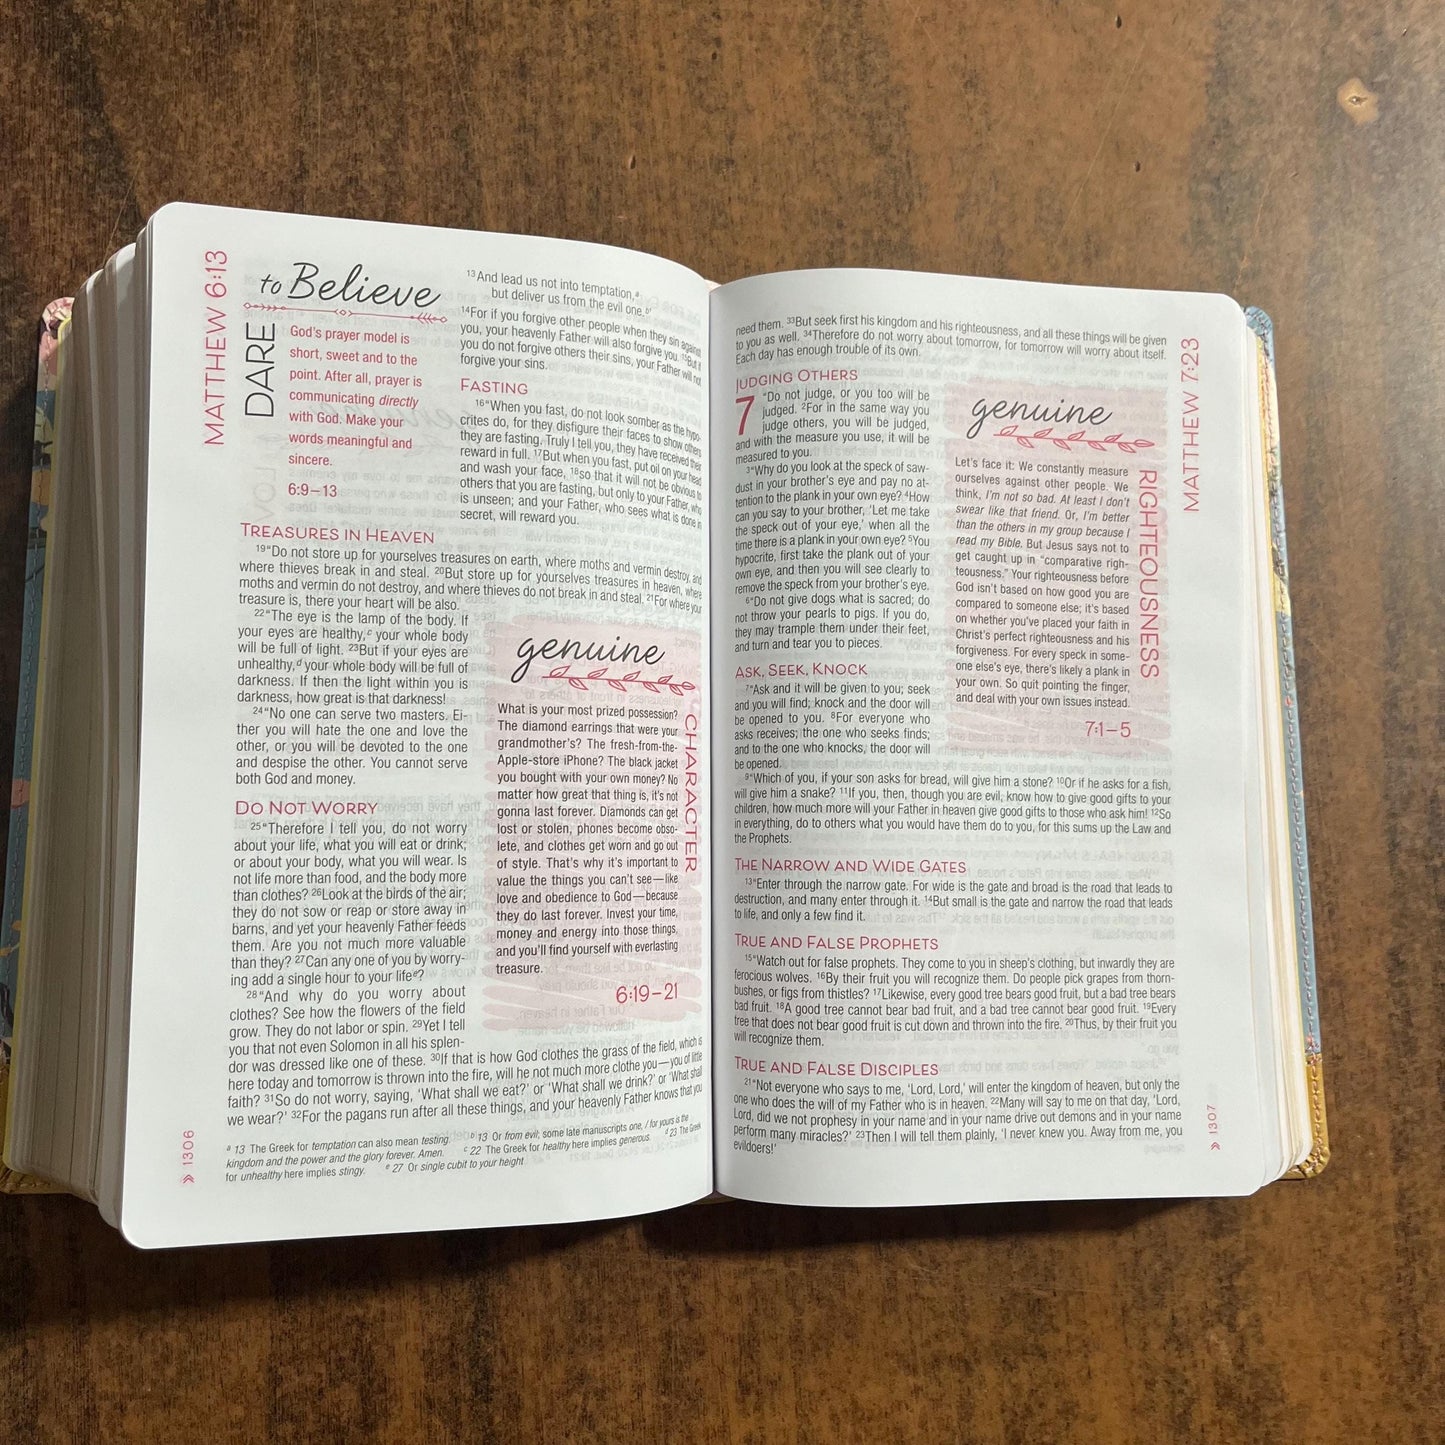 MATTHEW 6:13
DARE
to Believe
God's prayer model is
short, sweet and to the
point. After all, prayer is
communicating directly
with God. Make your
words meaningful and
sincere.
6:9–13
13 And lead us not into temptation,a
but deliver us from the evil one.b'
14For if you forgive other people when they sin against
you, your heavenly Father will also forgive you. 15But if
you do not forgive others their sins, your Father will not
forgive your sins.
FASTING
16"When you fast, do not look somber as the hypo-
crites do, for they disfigure their faces to show others
they are fasting. Truly I tell you, they have received their
reward in full. 17But when you fast, put oil on your head
and wash your face, 18so that it will not be obvious to
others that you are fasting, but only to your Father, who
is unseen; and your Father, who sees what is done in
secret, will reward you.
TREASURES IN HEAVEN
19"Do not store up for yourselves treasures on earth, where moths and vermin destroy, and
where thieves break in and steal. 20But store up for yourselves treasures in heaven, where
moths and vermin do not destroy, and where thieves do not break in and steal. 21For where your
treasure is, there your heart will be also.
22"The eye is the lamp of the body. If
your eyes are healthy,c your whole body
will be full of light. 23But if your eyes are
unhealthy,d your whole body will be full of
darkness. If then the light within you is
darkness, how great is that darkness!
24"No one can serve two masters. Ei-
ther you will hate the one and love the
other, or you will be devoted to the one
and despise the other. You cannot serve
both God and money.
DO NOT WORRY
25"Therefore I tell you, do not worry
about your life, what you will eat or drink;
or about your body, what you will wear. Is
not life more than food, and the body more
than clothes? 26Look at the birds of the air;
they do not sow or reap or store away in
barns, and yet your heavenly Father feeds
them. Are you not much more valuable
than they? 27Can any one of you by worry-
ing add a single hour to your lifee?
28"And why do you worry about
clothes? See how the flowers of the field
grow. They do not labor or spin. 29Yet I tell
you that not even Solomon in all his splen-
dor was dressed like one of these. 30If that is how God clothes the grass of the field, which is
here today and tomorrow is thrown into the fire, will he not much more clothe you—you of little
faith? 31So do not worry, saying, 'What shall we eat?' or 'What shall we drink?' or 'What shall
we wear?' 32For the pagans run after all these things, and your heavenly Father knows that you
genuine
CHARACTER
What is your most prized possession?
The diamond earrings that were your
grandmother's? The fresh-from-the-
Apple-store iPhone? The black jacket
you bought with your own money? No
matter how great that thing is, it's not
gonna last forever. Diamonds can get
lost or stolen, phones become obso-
lete, and clothes get worn and go out
of style. That's why it's important to
value the things you can't see—like
love and obedience to God—because
they do last forever. Invest your time,
money and energy into those things,
and you'll find yourself with everlasting
treasure.
6:19–21
a 13 The Greek for temptation can also mean testing. b 13 Or from evil; some late manuscripts one, / for yours is the
kingdom and the power and the glory forever. Amen. c 22 The Greek for healthy here implies generous. d 23 The Greek
for unhealthy here implies stingy. e 27 Or single cubit to your height
» 1306
MATTHEW 7:23
need them. 33But seek first his kingdom and his righteousness, and all these things will be given
to you as well. 34Therefore do not worry about tomorrow, for tomorrow will worry about itself.
Each day has enough trouble of its own.
JUDGING OTHERS
7 "Do not judge, or you too will be
judged. 2For in the same way you
judge others, you will be judged,
and with the measure you use, it will be
measured to you.
3"Why do you look at the speck of saw-
dust in your brother's eye and pay no at-
tention to the plank in your own eye? 4How
can you say to your brother, 'Let me take
the speck out of your eye,' when all the
time there is a plank in your own eye? 5You
hypocrite, first take the plank out of your
own eye, and then you will see clearly to
remove the speck from your brother's eye.
6"Do not give dogs what is sacred; do
not throw your pearls to pigs. If you do,
they may trample them under their feet,
and turn and tear you to pieces.
ASK, SEEK, KNOCK
7"Ask and it will be given to you; seek
and you will find; knock and the door will
be opened to you. 8For everyone who
asks receives; the one who seeks finds;
and to the one who knocks, the door will
be opened.
9"Which of you, if your son asks for bread, will give him a stone? 10Or if he asks for a fish,
will give him a snake? 11If you, then, though you are evil, know how to give good gifts to your
children, how much more will your Father in heaven give good gifts to those who ask him! 12So
in everything, do to others what you would have them do to you, for this sums up the Law and
the Prophets.
genuine
RIGHTEOUSNESS
Let's face it: We constantly measure
ourselves against other people. We
think, I'm not so bad. At least I don't
swear like that friend. Or, I'm better
than the others in my group because I
read my Bible. But Jesus says not to
get caught up in "comparative righ-
teousness." Your righteousness before
God isn't based on how good you are
compared to someone else; it's based
on whether you've placed your faith in
Christ's perfect righteousness and his
forgiveness. For every speck in some-
one else's eye, there's likely a plank in
your own. So quit pointing the finger,
and deal with your own issues instead.
7:1–5
THE NARROW AND WIDE GATES
13"Enter through the narrow gate. For wide is the gate and broad is the road that leads to
destruction, and many enter through it. 14But small is the gate and narrow the road that leads
to life, and only a few find it.
TRUE AND FALSE PROPHETS
15"Watch out for false prophets. They come to you in sheep's clothing, but inwardly they are
ferocious wolves. 16By their fruit you will recognize them. Do people pick grapes from thorn-
bushes, or figs from thistles? 17Likewise, every good tree bears good fruit, but a bad tree bears
bad fruit. 18A good tree cannot bear bad fruit, and a bad tree cannot bear good fruit. 19Every
tree that does not bear good fruit is cut down and thrown into the fire. 20Thus, by their fruit you
will recognize them.
TRUE AND FALSE DISCIPLES
21"Not everyone who says to me, 'Lord, Lord,' will enter the kingdom of heaven, but only the
one who does the will of my Father who is in heaven. 22Many will say to me on that day, 'Lord,
Lord, did we not prophesy in your name and in your name drive out demons and in your name
perform many miracles?' 23Then I will tell them plainly, 'I never knew you. Away from me, you
evildoers!'
» 1307